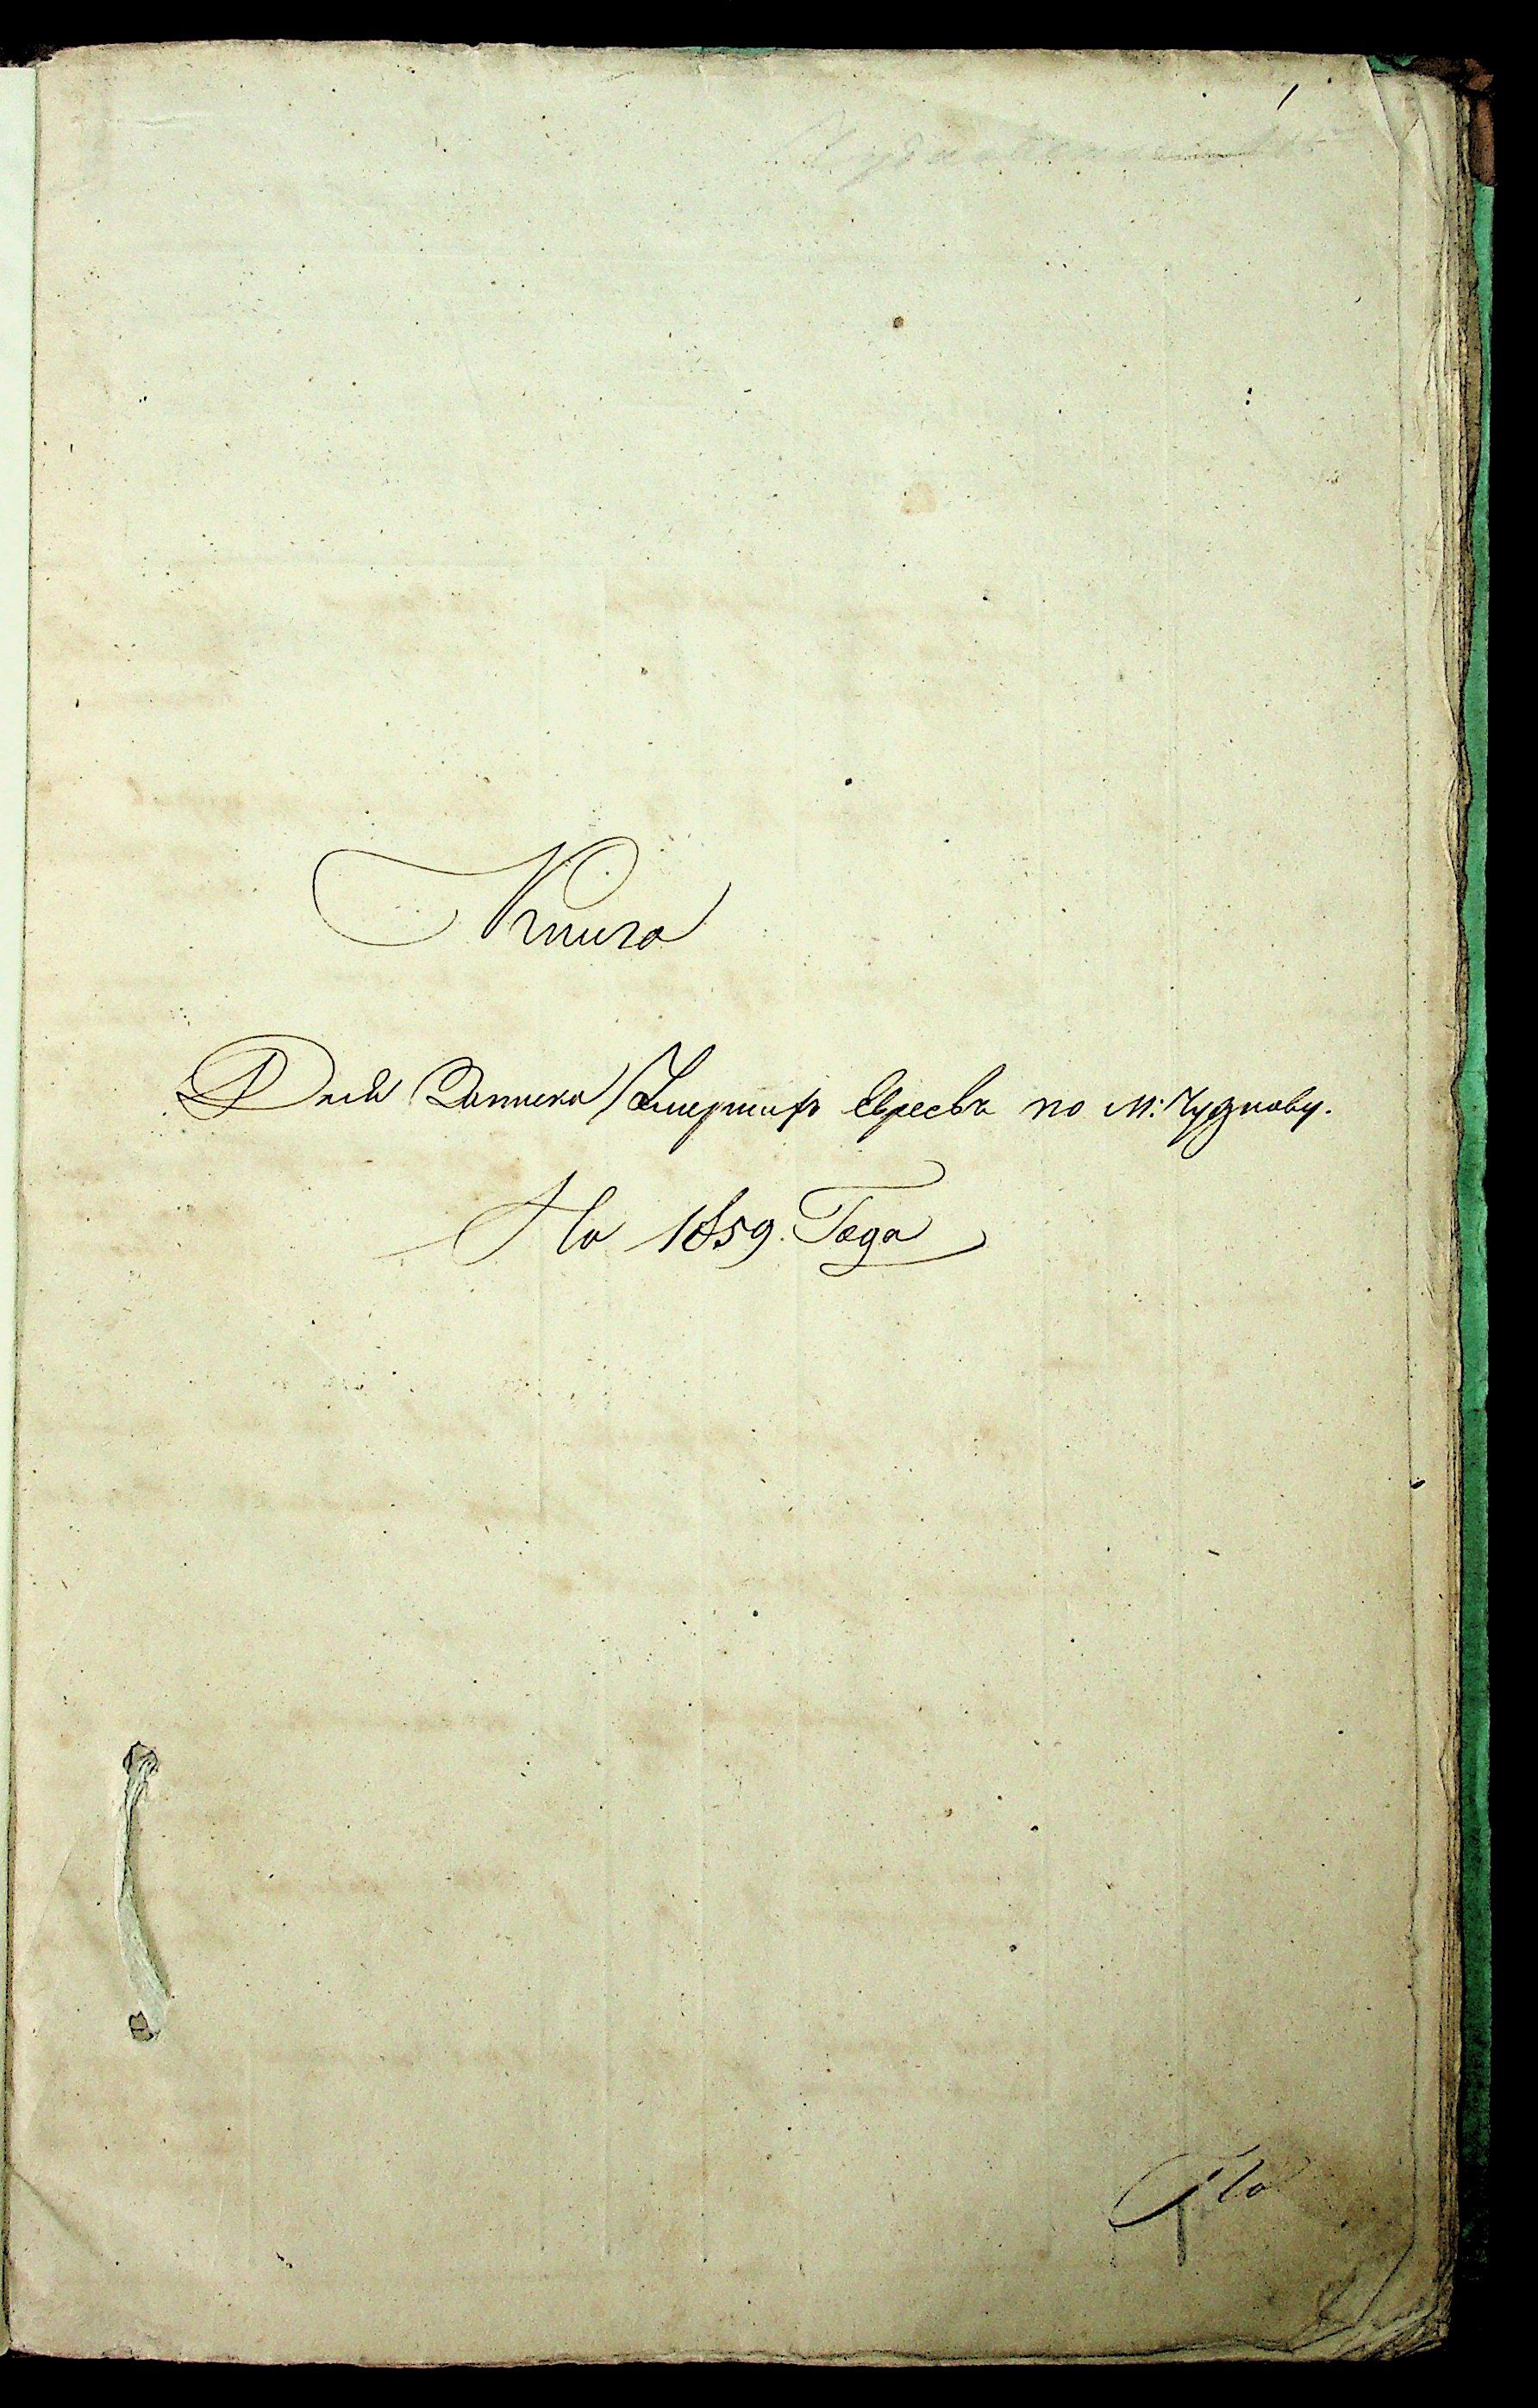 1
Книга
Для Записки Умершихъ Евреевъ по М: Чуднову.
На 1859. Года
На